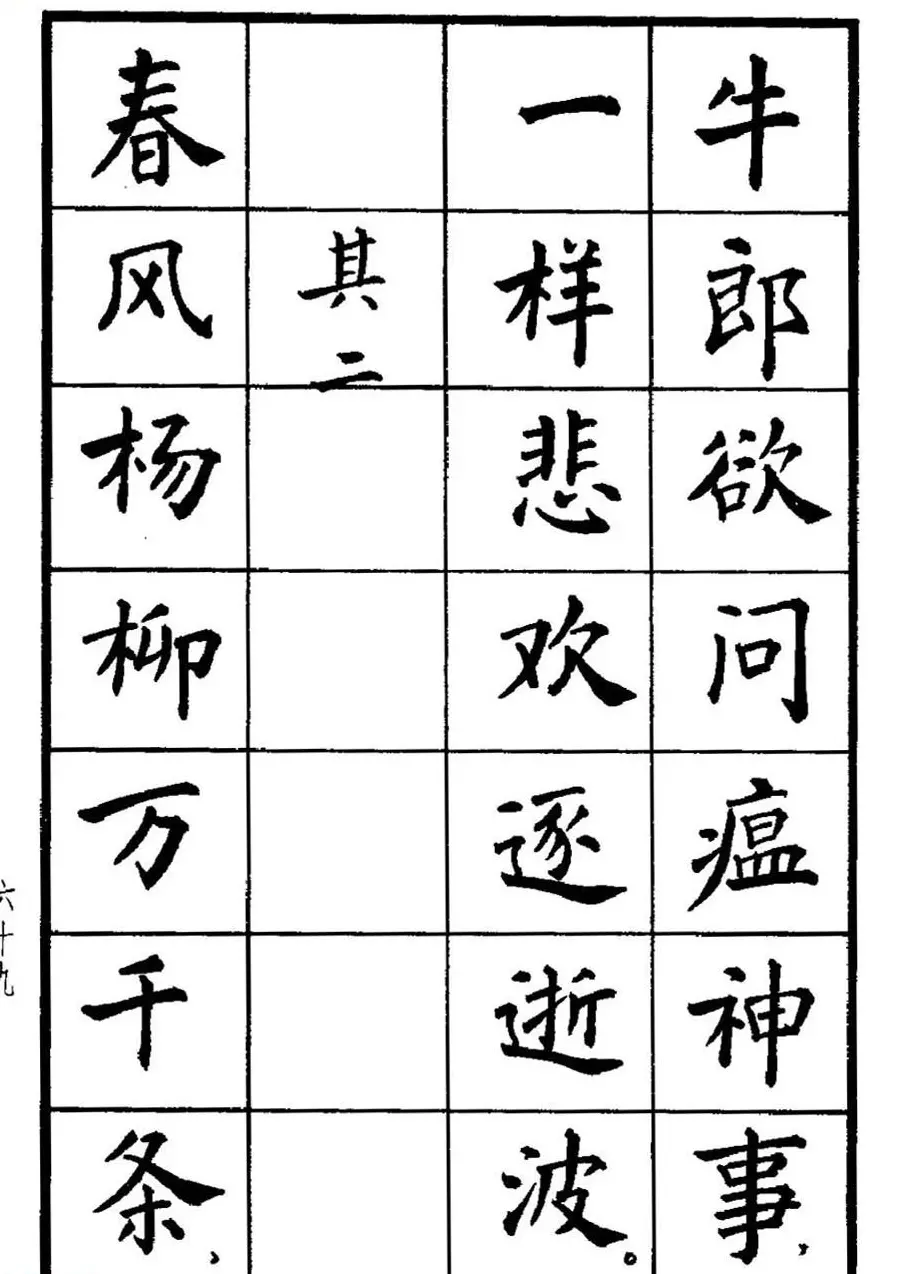 牛郎欲问瘟神事，
一样悲欢逐逝波。
其二
春风杨柳万千条，
六十九